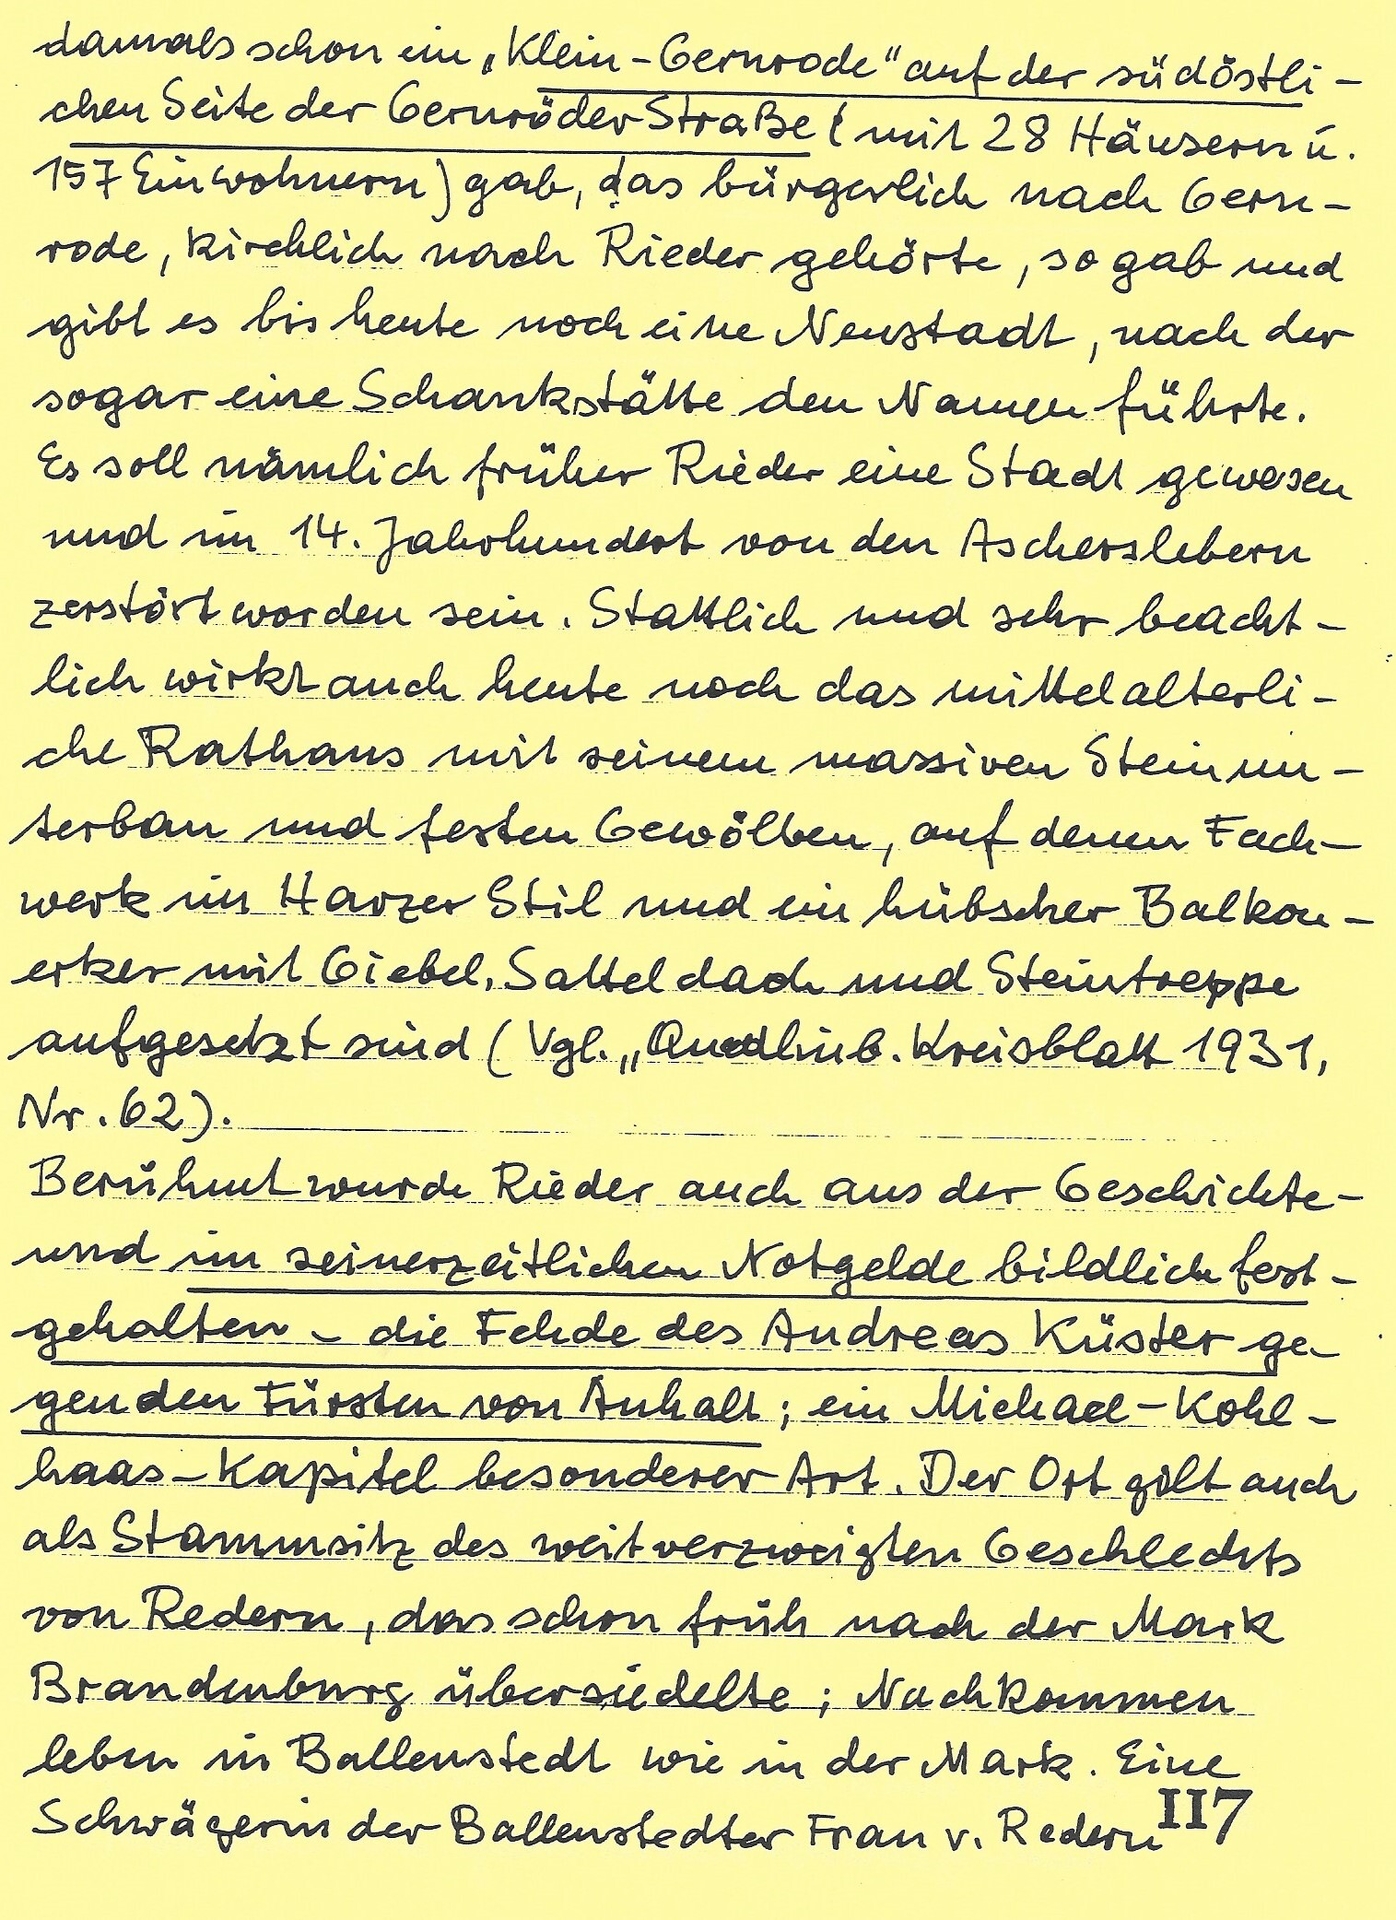 damals schon ein „Klein-Gernrode" auf der südöstli-
chen Seite der Gernröder Straße (mit 28 Häusern u.
157 Einwohnern) gab, das bürgerlich nach Gern-
rode, kirchlich nach Rieder gehörte, so gab und
gibt es bis heute noch eine Neustadt, nach der
sogar eine Schankstätte den Namen führte.
Es soll nämlich früher Rieder eine Stadt gewesen
und im 14. Jahrhundert von den Ascherslebern
zerstört worden sein. Stattlich und sehr beacht-
lich wirkt auch heute noch das mittelalterli-
che Rathaus mit seinem massiven Steinun-
terbau und festen Gewölben, auf denen Fach-
werk im Harzer Stil und ein hübscher Balkon-
erker mit Giebel, Satteldach und Steintreppe
aufgesetzt sind (Vgl. „Quedlinb. Kreisblatt 1931,
Nr. 62).
Berühmt wurde Rieder auch aus der Geschichte-
und im seinerzeitlichen Notgelde bildlich fest-
gehalten - die Fehde des Andreas Küster ge-
gen den Fürsten von Anhalt; ein Michael-Kohl-
haas-Kapitel besonderer Art. Der Ort gilt auch
als Stammsitz des weitverzweigten Geschlechts
von Redern, das schon früh nach der Mark
Brandenburg übersiedelte; Nachkommen
leben in Ballenstedt wie in der Mark. Eine
Schwägerin der Ballenstedter Frau v. Redern
117